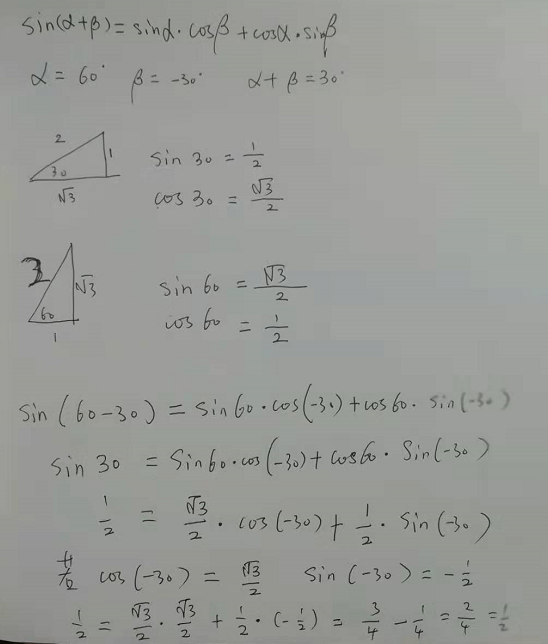 sin(α+β)=sinα·cosβ+cosα·sinβ
α = 60° β = -30° α+β=30°
2
1
30
√3
sin 30 = 1/2
cos 30 = √3/2
2
√3
60
1
sin 60 = √3/2
cos 60 = 1/2
sin(60-30) = sin60·cos(-30)+cos60·sin(-30)
sin 30 = sin60·cos(-30)+cos60·sin(-30)
1/2 = √3/2·cos(-30)+1/2·sin(-30)
cos(-30) = √3/2 sin(-30)=-1/2
1/2 = √3/2·√3/2+1/2·(-1/2) = 3/4-1/4=2/4=1/2